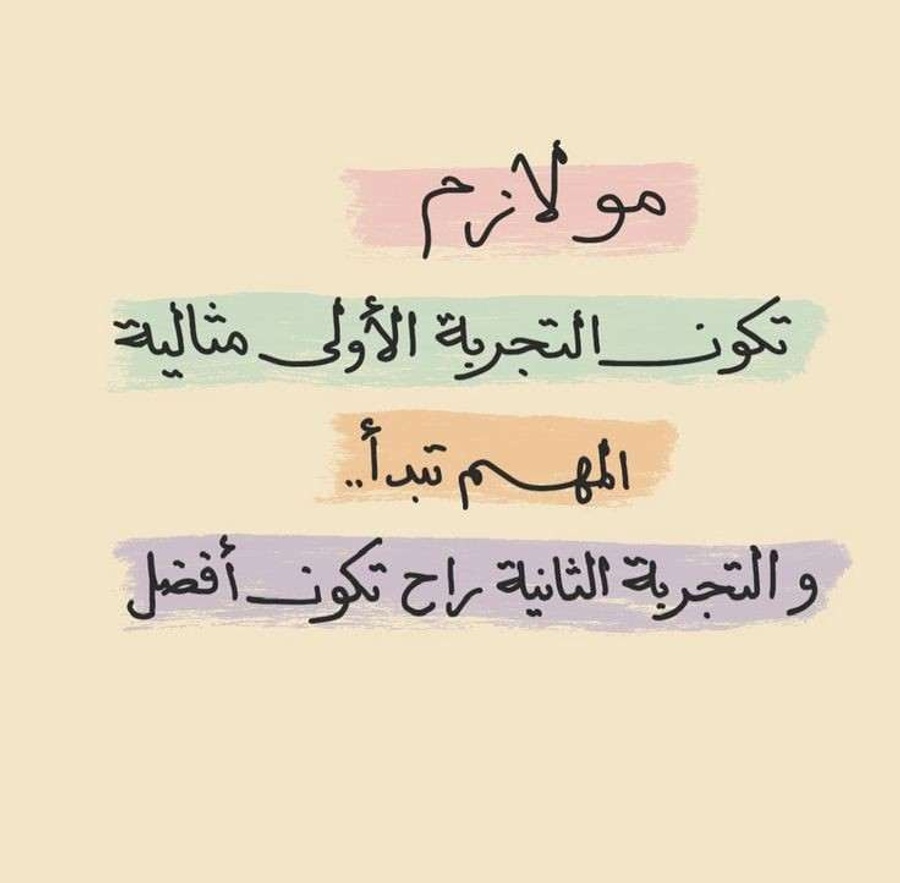 مو لازم
تكون التجربة الأولى مثالية
المهم تبدأ..
و التجربة الثانية راح تكون أفضل